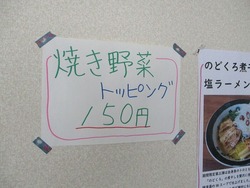 焼き野菜
トッピング
150円
のどくろ煮干
塩ラーメン